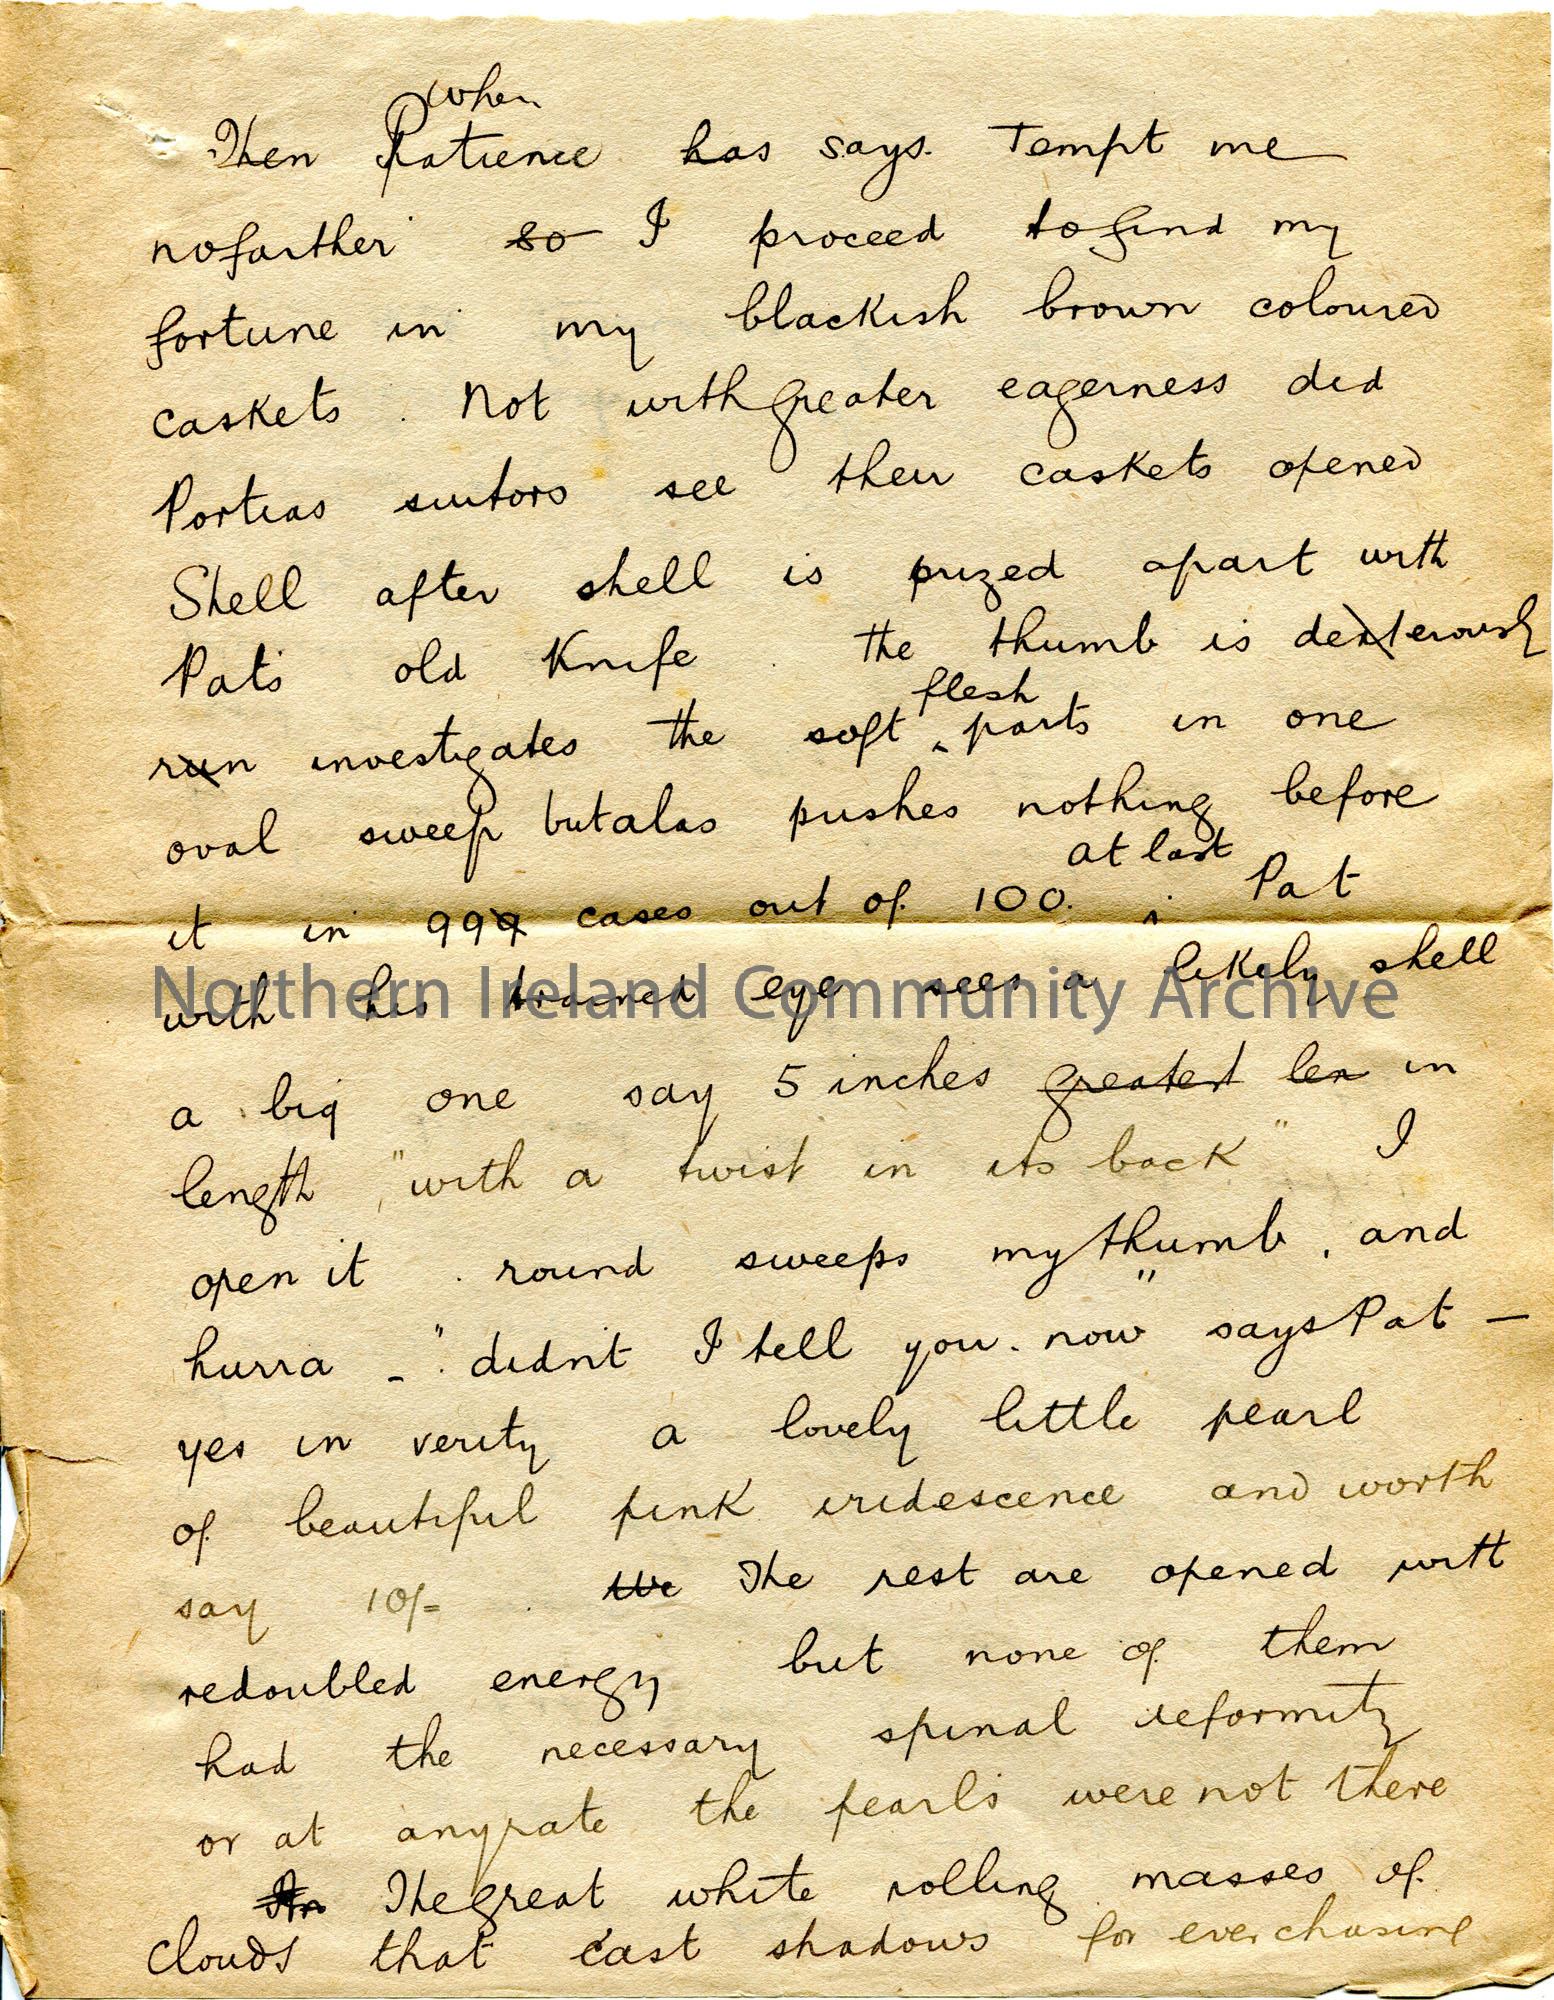 when
Then Patience has says. Tempt me
nofarther so I proceed to find my
fortune in my blackish brown coloured
caskets. Not with greater eagerness did
Portias suitors see their caskets opened
Shell after shell is prized apart with
Pat's old Knife. The thumb is dexterously
flesh
run investigates the soft ‸ parts in one
oval sweep but alas pushes nothing before
at last
it in 999 cases out of 100. ‸ Pat
with his trained eye sees a likely shell
Northern Ireland Community Archive
a big one say 5 inches greatest len in
length "with a twist in its back" I
open it. round sweeps my thumb, and
hurra - "didn't I tell you. now" says Pat —
yes in verity a lovely little pearl
of beautiful pink iridescence and worth
say 10/=. We The rest are opened with
redoubled energy but none of them
had the necessary spinal deformity
or at anyrate the pearls were not there
An The great white rolling masses of
clouds that cast shadows for ever chasing